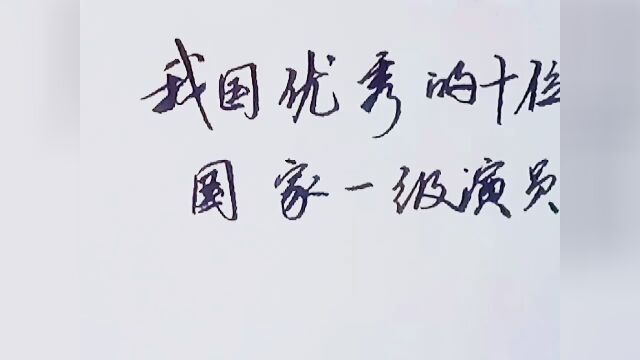 我国优秀的十位
国家一级演员